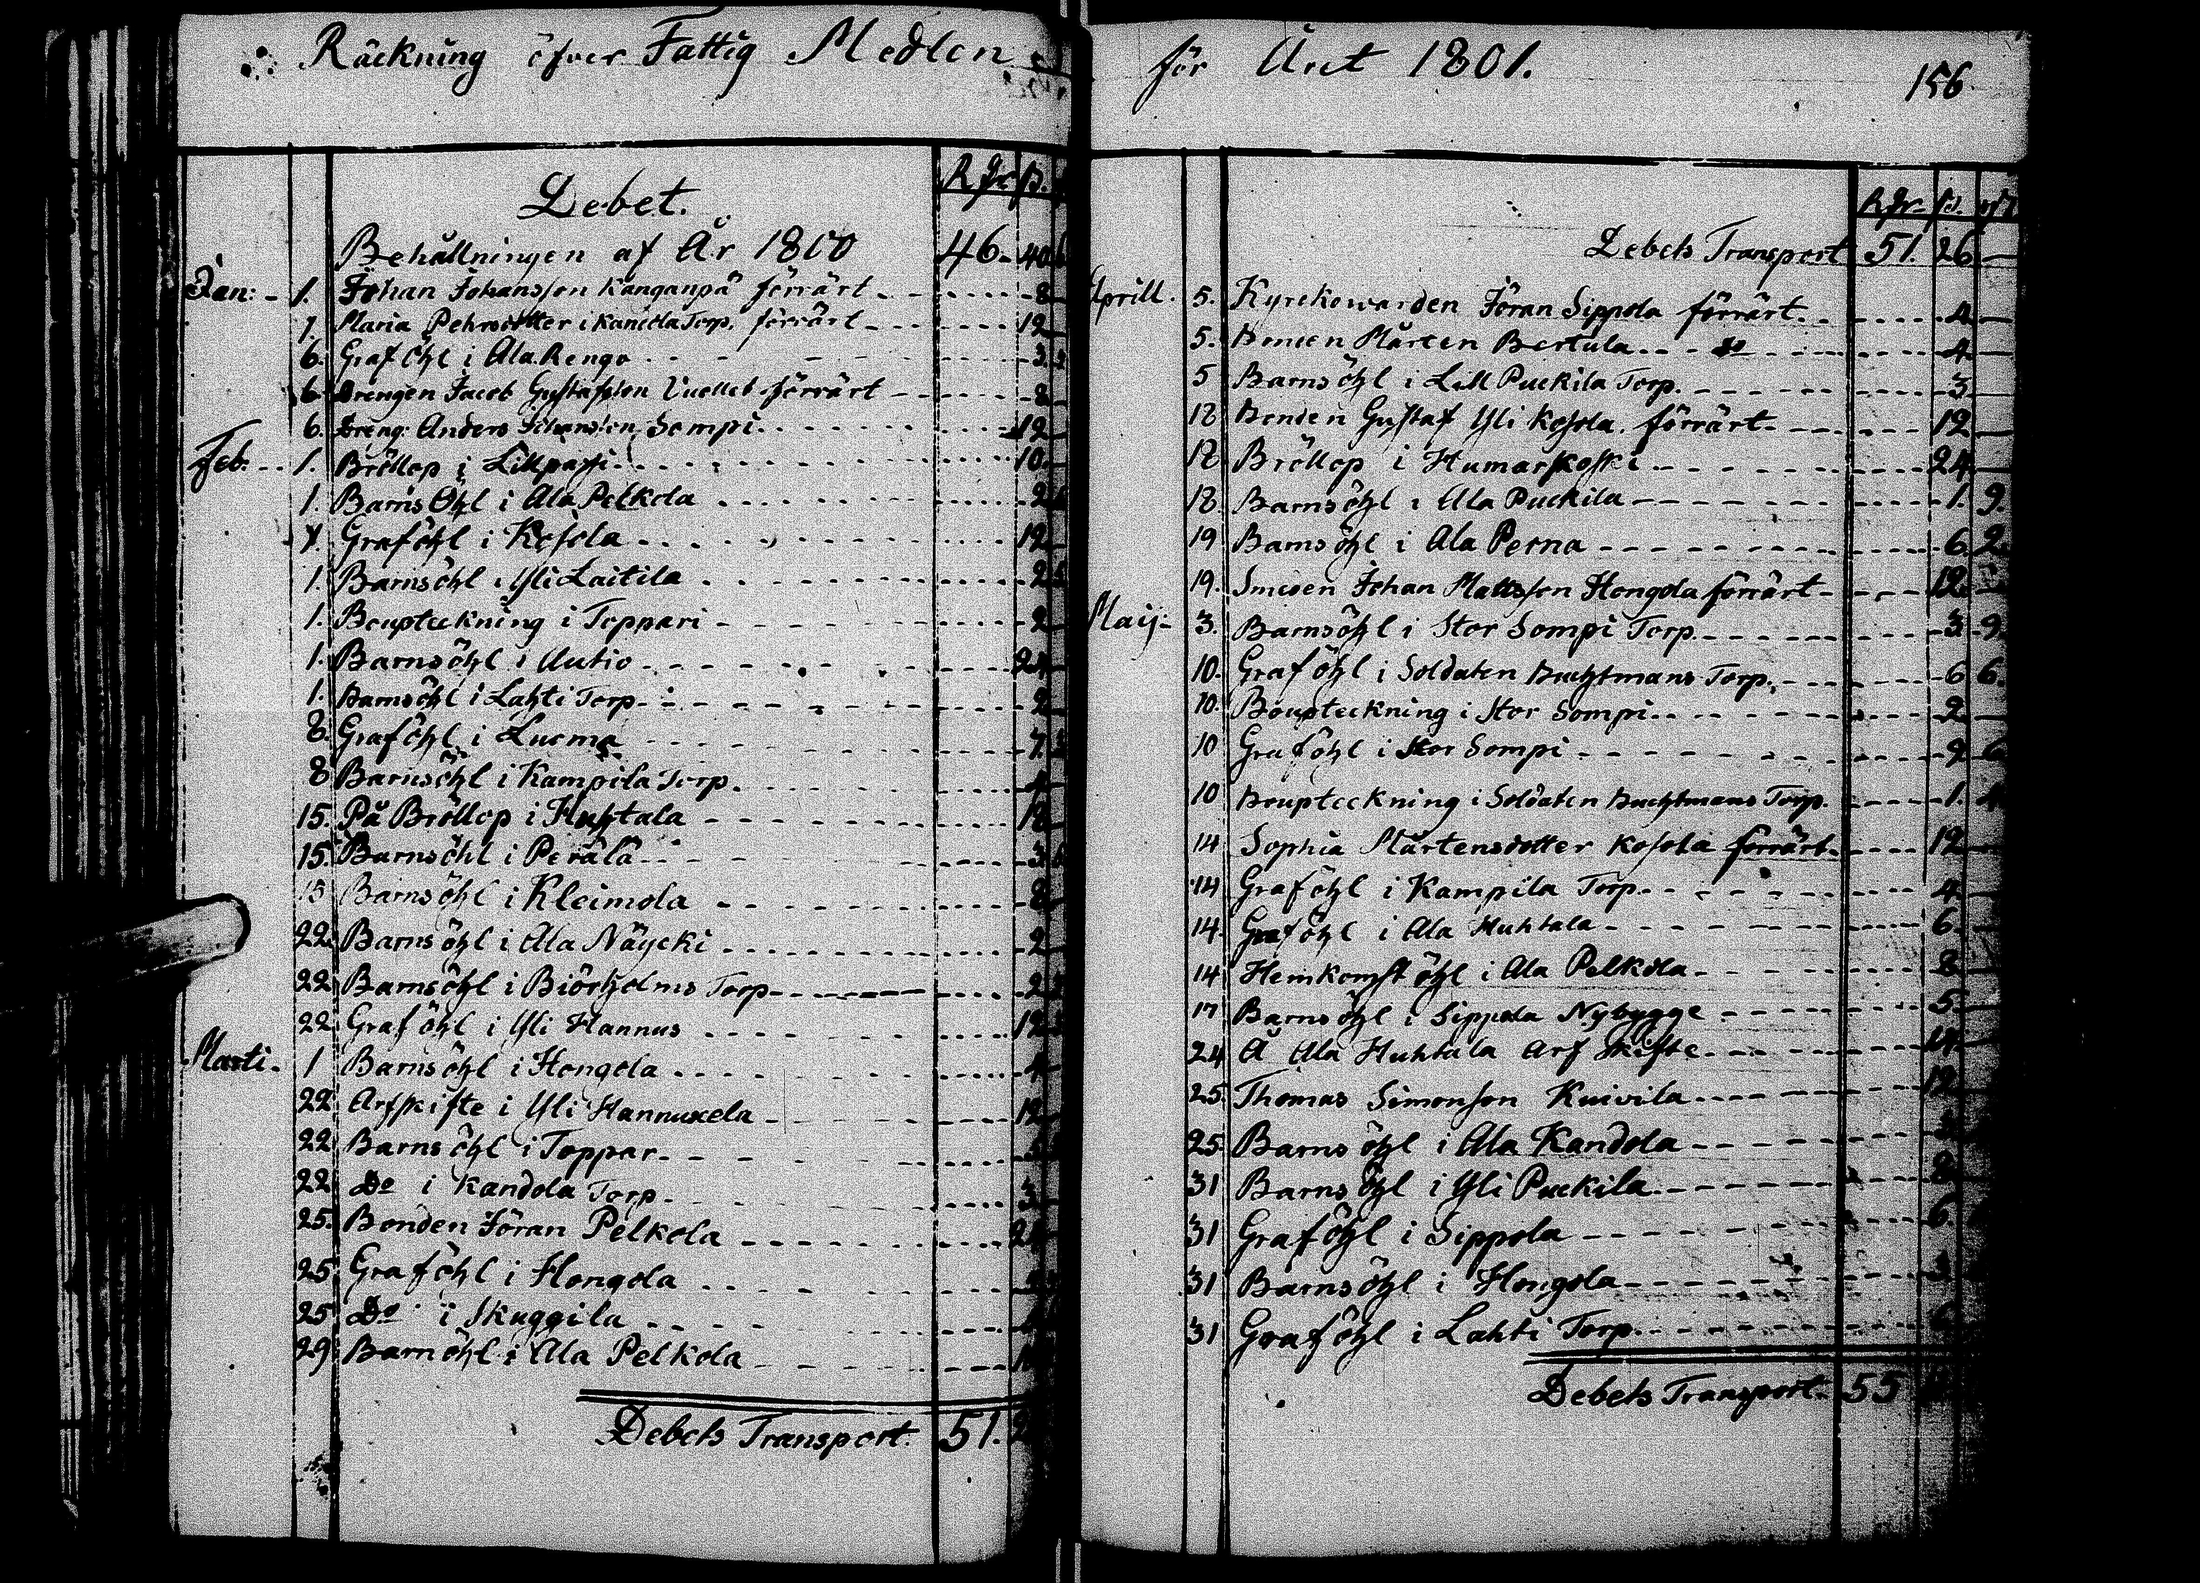 Räckning öfver Fattig Medlen
Debet.
R:dr ß.
Behållningen af År 1800 46. 40
Jan: 1. Johan Johansson Kanganpä förrärt 8
1. Maria Pehrsdotter i Kandola Torp. förrärt 12
6. Graföhl i Ala Rengo 3.
6. Drengen Jacob Gustafsson förrärt 8
6. Dreng: Anders Johansson Sompi 12
Feb. 1. Bröllop i Lillpassi 10.
1. Barns Öhl i Ala Pelkola 2
1. Graföhl i Kosola 12
1. Barnsöhl i Yli Laitila 2
1. Boupteckning i Toppari 2
1. Barnsöhl i Autio 24
1. Barnsöhl i Lahti Torp 2
8. Graföhl i Luoma 7
8 Barnsöhl i Kampila Torp. 4
15. På Bröllop i Huhtala 18
15. Barnsöhl i Perälä 3
15 Barnsöhl i Kleimola 8
22. Barnsöhl i Ala Näycki 2
22 Barnsöhl i Biörholms Torp 2
22 Graföhl i Yli Hannus 12
Marti. 1 Barnsöhl i Hongola 4
22 Arfskifte i Yli Hannuxela 12
22 Barnsöhl i Toppar
22 Do i Kandola Torp 3
25. Bonden Jöran Pelkola 24
25 Graföhl i Hongola
25 Do i Skuggila
29 Barnöhl i Ala Pelkola
Debets Transport. 51. 2
för Året 1801.
156
R:dr ß.
Debets Transport 51. 26 —
Aprill. 5. Kyrckowärden Jöran Sippola förrärt 4 —
5. Bonden Mårten Bertula do 4 —
5 Barnsöhl i Lill Puckila Torp. 3 —
12 Bonden Gustaf Yli Kosola. förrärt 12 —
12 Bröllop i Humarkoski 24 —
18. Barnsöhl i Ala Puckila 1. 9.
19 Barnsöhl i Ala Perna 6 2.
19. Smeden Johan Mattsson Hongola förrärt 12.
Maij. 3. Barnsöhl i Stor Sompi Torp. 3 9.
10. Graföhl i Soldaten Buchtmans Torp. 6 6.
10. Boupteckning i Stor Sompi 2 —
10 Graföhl i Stor Sompi 9 6
10 Boupteckning i Soldaten Buchtmans Torp. 1.
14 Sophia Mårtensdotter Kosola förrärt 12
14 Graföhl i Kampila Torp 4
14. Graföhl i Ala Huhtala 6.
14 Hemkomstöhl i Ala Pelkola 8
17 Barnsöhl i Sippola Nybygge 5
24 Å Ala Huhtala Arf skifte
25 Thomas Simonson Kuivila 12
25 Barnsöhl i Ala Kandola
31 Barnsöhl i Yli Puckila 2
31 Graföhl i Sippola 6.
31 Barnsöhl i Hongola 3
31 Graföhl i Lahti Torp.
Debets Transport. 55